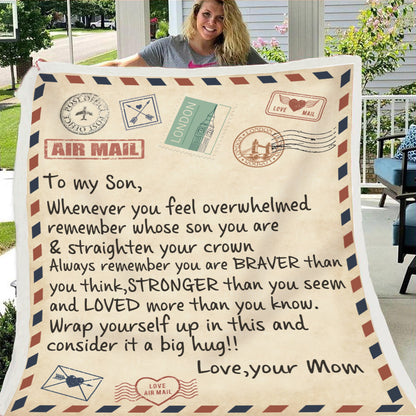 POST OFFICE
LONDON
LOVE MAIL
AIR MAIL
To my Son,
Whenever you feel overwhelmed
remember whose son you are
& straighten your crown
Always remember you are BRAVER than
you think,STRONGER than you seem
and LOVED more than you know.
Wrap yourself up in this and
consider it a big hug!!
Love,your Mom
LOVE
AIR MAIL